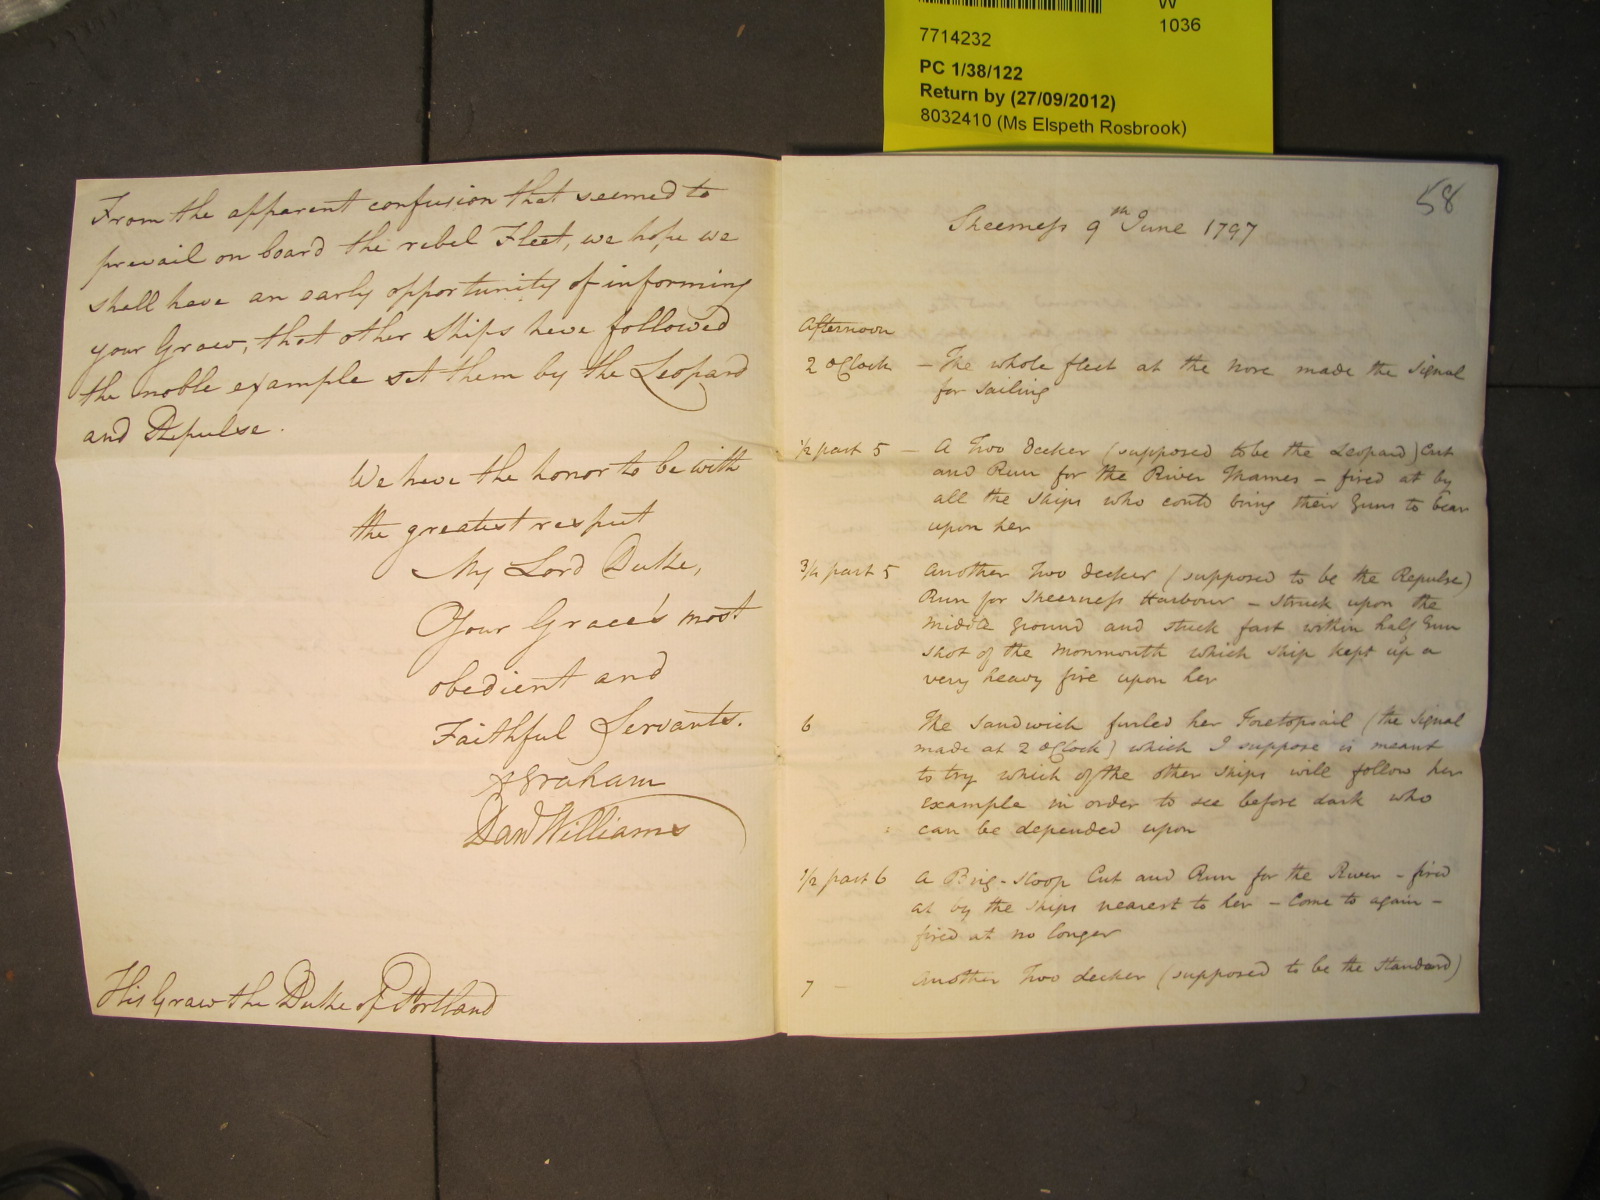 W
1036
7714232
PC 1/38/122
Return by (27/09/2012)
8032410 (Ms Elspeth Rosbrook)
From the apparent confusion that seemed to
prevail on board the rebel Fleet, we hope we
shall have an early opportunity of informing
your Grace, that other Ships have followed
the noble example set them by the Leopard
and Repulse.
We have the honor to be with
the greatest respect
My Lord Duke,
Your Grace's most
obedient and
Faithful Servants.
A Graham
Danl Williams
His Grace the Duke of Portland
58
Sheerness 9th June 1797
Afternoon
2 oClock - The whole fleet at the Nore made the Signal
for Sailing
1/2 past 5 - A Two decker (supposed to be the Leopard) Cut
and Run for the River Thames - fired at by
all the ships who could bring their Guns to bear
upon her
3/4 past 5 Another Two decker (supposed to be the Repulse)
Run for Sheerness Harbour - struck upon the
Middle ground and stuck fast within half Gun
shot of the Monmouth which ship kept up a
very heavy fire upon her
6 The Sandwich furled her Foretopsail (the Signal
made at 2 oClock) which I suppose is meant
to try which of the other ships will follow her
Example in order to see before dark who
can be depended upon
1/2 past 6 A Brig-Sloop Cut and Run for the River - fired
at by the ships nearest to her - Come to again -
fired at no longer
7 - Another Two decker (supposed to be the Standard)